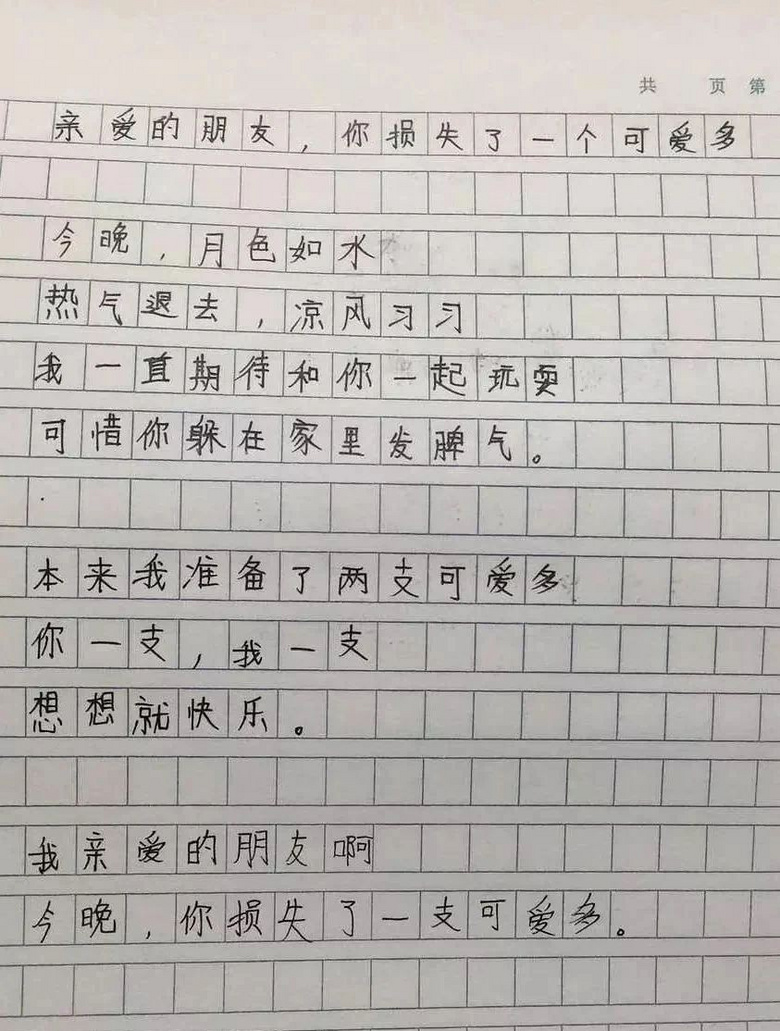 共 页 第
亲爱的朋友，你损失了一个可爱多
今晚，月色如水
热气退去，凉风习习
我一直期待和你一起玩耍
可惜你躲在家里发脾气。
本来我准备了两支可爱多
你一支，我一支
想想就快乐。
我亲爱的朋友啊
今晚，你损失了一支可爱多。